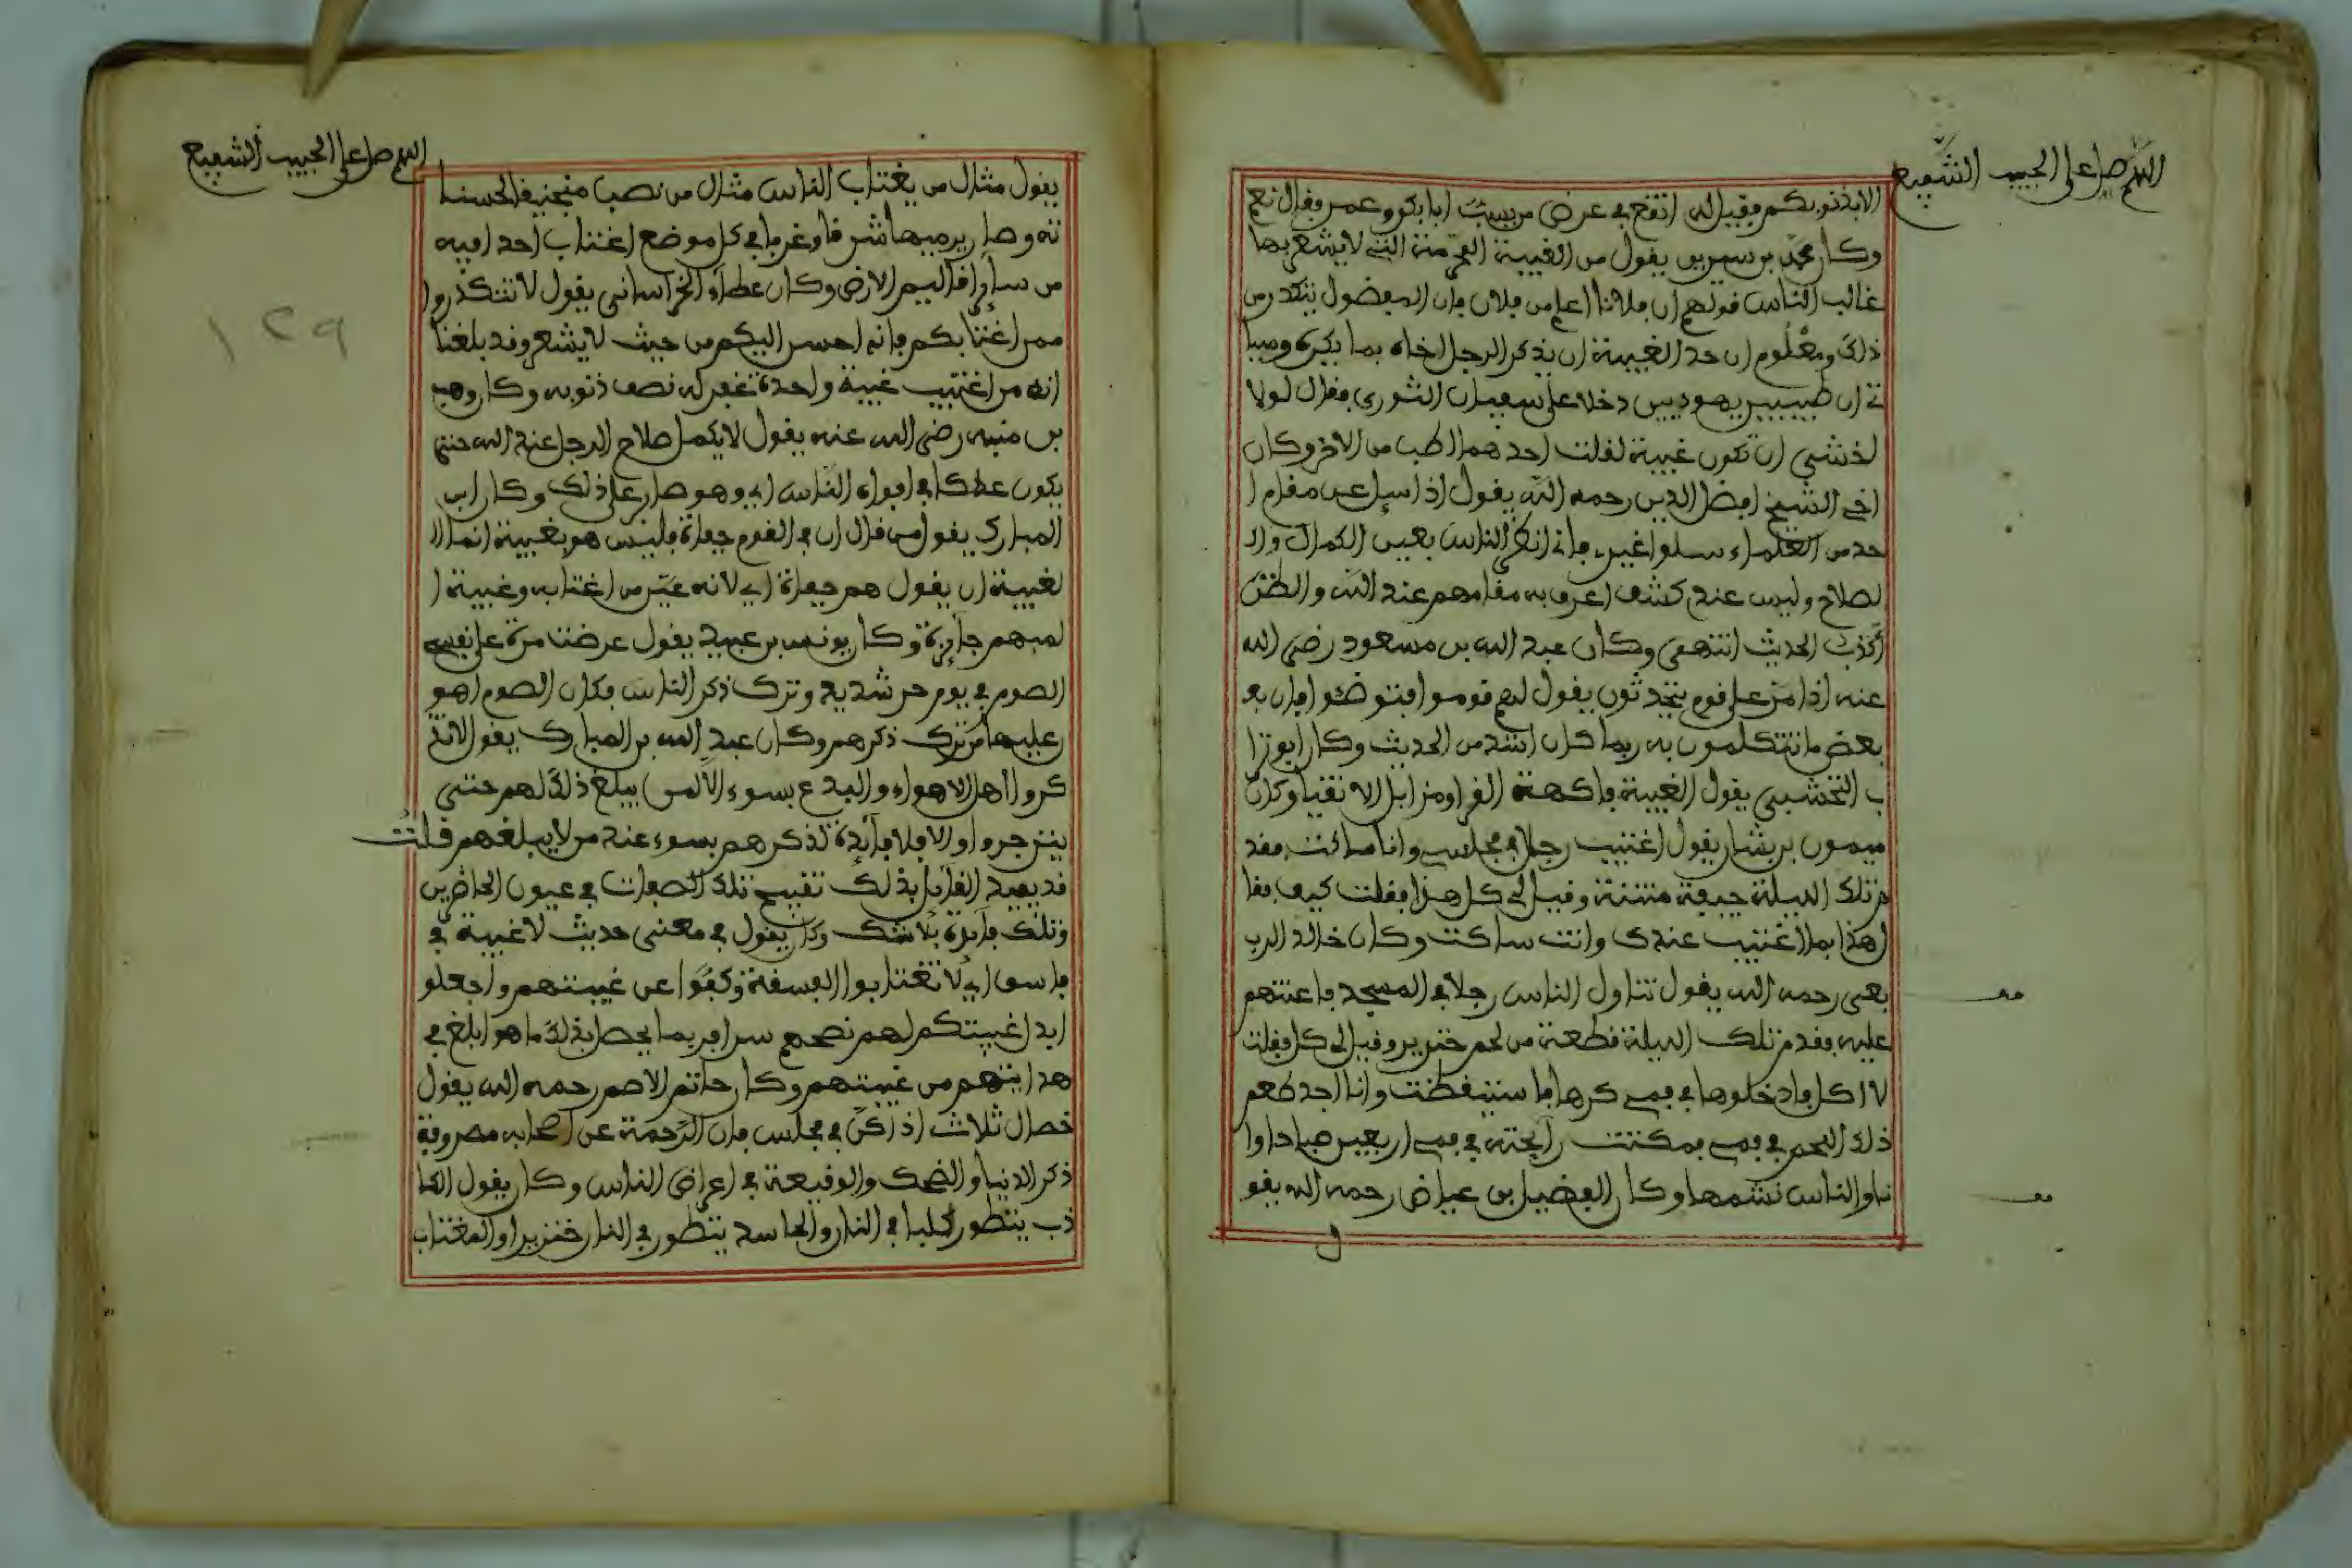 اللهم صل على الحبيب الشفيع
الا بذنوبكم فقيل له اتقع في عرض من يسب ابا بكر وعمر فقال نعم
وكان محمد بن سيرين يقول من الغيبة المحرمة التي لا يشعر بها
غالب الناس قولهم ان فلانا اعلم من فلان فان المفضول يتكدر من
ذلك ومعلوم ان حد الغيبة ان يذكر الرجل اخاه بما يكره وسيا
تي ان طبيبين يهوديين دخلا على سفيان الثوري فقال لولا
اخشى ان تكون غيبة لقلت احدهما اطب من الاخر وكان
اخي الشيخ افضل الدين رحمه الله يقول اذا سيل عن مقام ا
حد من العلماء سلوا غيري فاني انظر الناس بعين الكمال والـ
لصلاح وليس عندي كشف اعرف به مقامهم عند الله والظن
اكذب الحديث انتهى وكان عبد الله بن مسعود رضي الله
عنه اذا مر على قوم يتحدثون يقول لهم قوموا فتوضئوا فان بعـ
بعض ما تتكلمون به ربما كان اشد من الحديث وكان ابو ترا
ب النخشبي يقول الغيبة فاكهة القرا ومزابل الاتقيا وكان
ميمون بن يسار يقول اغتيب رجل في مجلس وانا ساكت فقد
م تلك الليلة جيفة منتنة وقيل لي كل هذا فقلت كيف فقا
ل هذا بما اغتيب عندك وانت ساكت وكان خالد الربـ
بعى رحمه الله يقول تناول الناس رجلا في المسجد فاعنتهم
عليه فقدم تلك الليلة قطعة من لحم خنزير وقيل لي كل فقلت
لا اكل فادخلوها في فمي كرها فاستيقظت وانا اجد طعم
ذلك اللحم في فمي فمكثت رايحته في فمي اربعين صباحا وا
نا والناس نشمها وكان الفضيل بن عياض رحمه الله يقو
ل
اللهم صل على الحبيب الشفيع
١٢٩
يقول مثال من يغتاب الناس مثال من نصب منجنيقا لحسنا
ته وصار يرميها شرقا وغربا في كل موضع اغتاب احدا فيه
من ساير اقاليم الارض وكان عطاء الخراساني يقول لا تتكدروا
ممن اغتابكم فانه احسن اليكم من حيث لا يشعر وقد بلغنا
انه من اغتيب غيبة واحدة غفر له نصف ذنوبه وكان وهب
بن منبه رضي الله عنه يقول لا يكمل صلاح الرجل عند الله حتى
يكون عطا في افواه الناس اي وهو صابر على ذلك وكان ابن
المبارك يقول من قال ان في القوم جفاة فليس هو بغيبة انما الـ
لغيبة ان يقول هم جفاة اي لانه عين من اغتابه وغيبة ا
لمبهم جايزة وكان يونس بن عبيد يقول عرضت مرة على نفسي
الصوم في يوم حر شديد وترك ذكر الناس فكان الصوم اهو
ن عليها من ترك ذكرهم وكان عبد الله بن المبارك يقول لا تذ
كروا اهل الاهواء والبدع بسوء الا لمن يبلغ ذلك لهم حتى
ينزجروا والا فلا فائدة لذكرهم بسوء عند من لا يبلغهم قلت
قد يفيد القائل بذلك تقبيح تلك الصفات في عيون الحاضرين
وتلك فايدة بلا شك وكان يقول في معنى حديث لا غيبة في
فاسق اي لا تغتابوا الفسقة وكفوا عن غيبتهم واجعلو
ا بدل غيبتكم لهم نصحهم سرا فربما يحصل بذلك ما هو ابلغ في
هدايتهم من غيبتهم وكان حاتم الاصم رحمه الله يقول
خصال ثلاث اذا كن في مجلس فان الرحمة عن اصحابه مصروفة
ذكر الدنيا والضحك والوقيعة في اعراض الناس وكان يقول الكا
ذب يتطور كلبا في النار والحاسد يتطور في النار خنزيرا والمغتاب